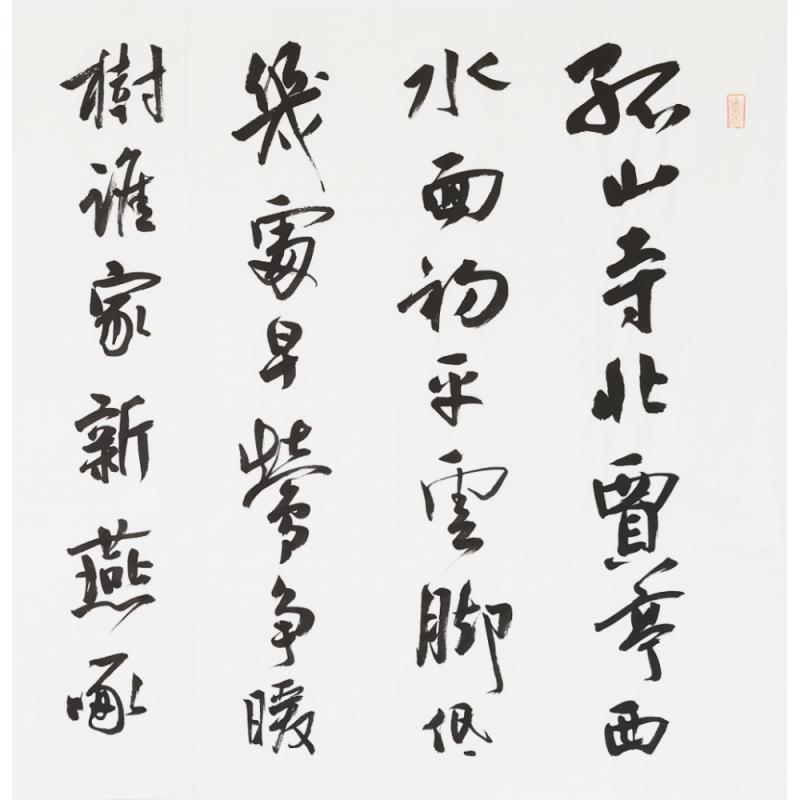 孤山寺北賈亭西
水面初平雲脚低
幾處早鶯争暖
樹誰家新燕啄